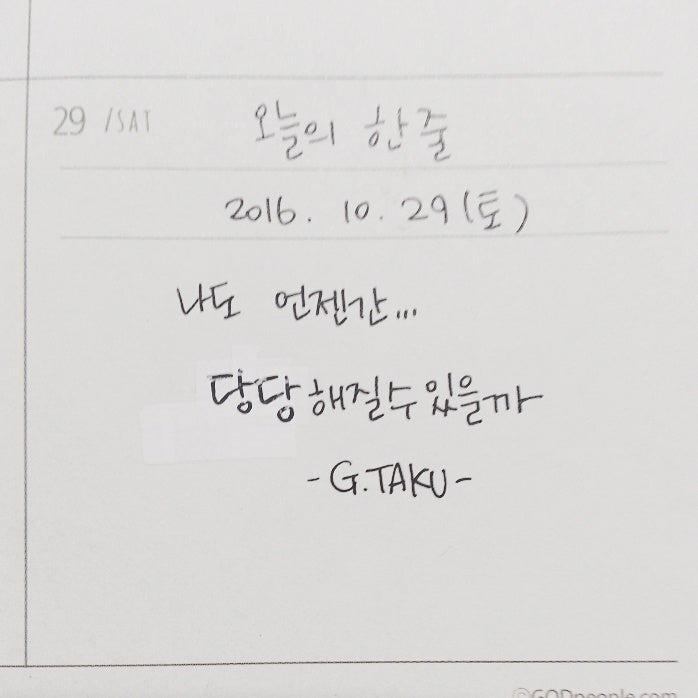 29 /SAT 오늘의 한줄
2016. 10. 29(토)
나도 언젠간...
당당해질수있을까
-G.TAKU-
©GODpeople.com